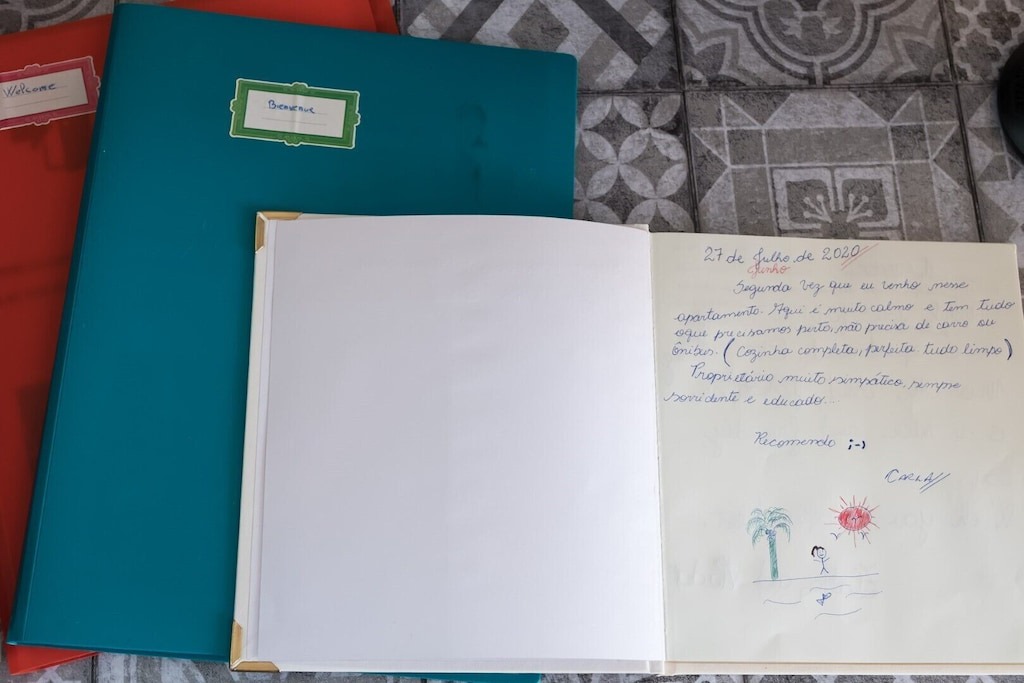 Welcome
BIENVENUE
27 de Julho de 2020
Junho
Segunda vez que eu venho nesse
apartamento. Aqui é muito calmo e tem tudo
oque precisamos perto, não precisa de carro ou
ônibus. (Cozinha completa, perfeita. tudo limpo)
Proprietário muito simpático, sempre
sorridente e educado...
Recomendo ;-)
CARLA